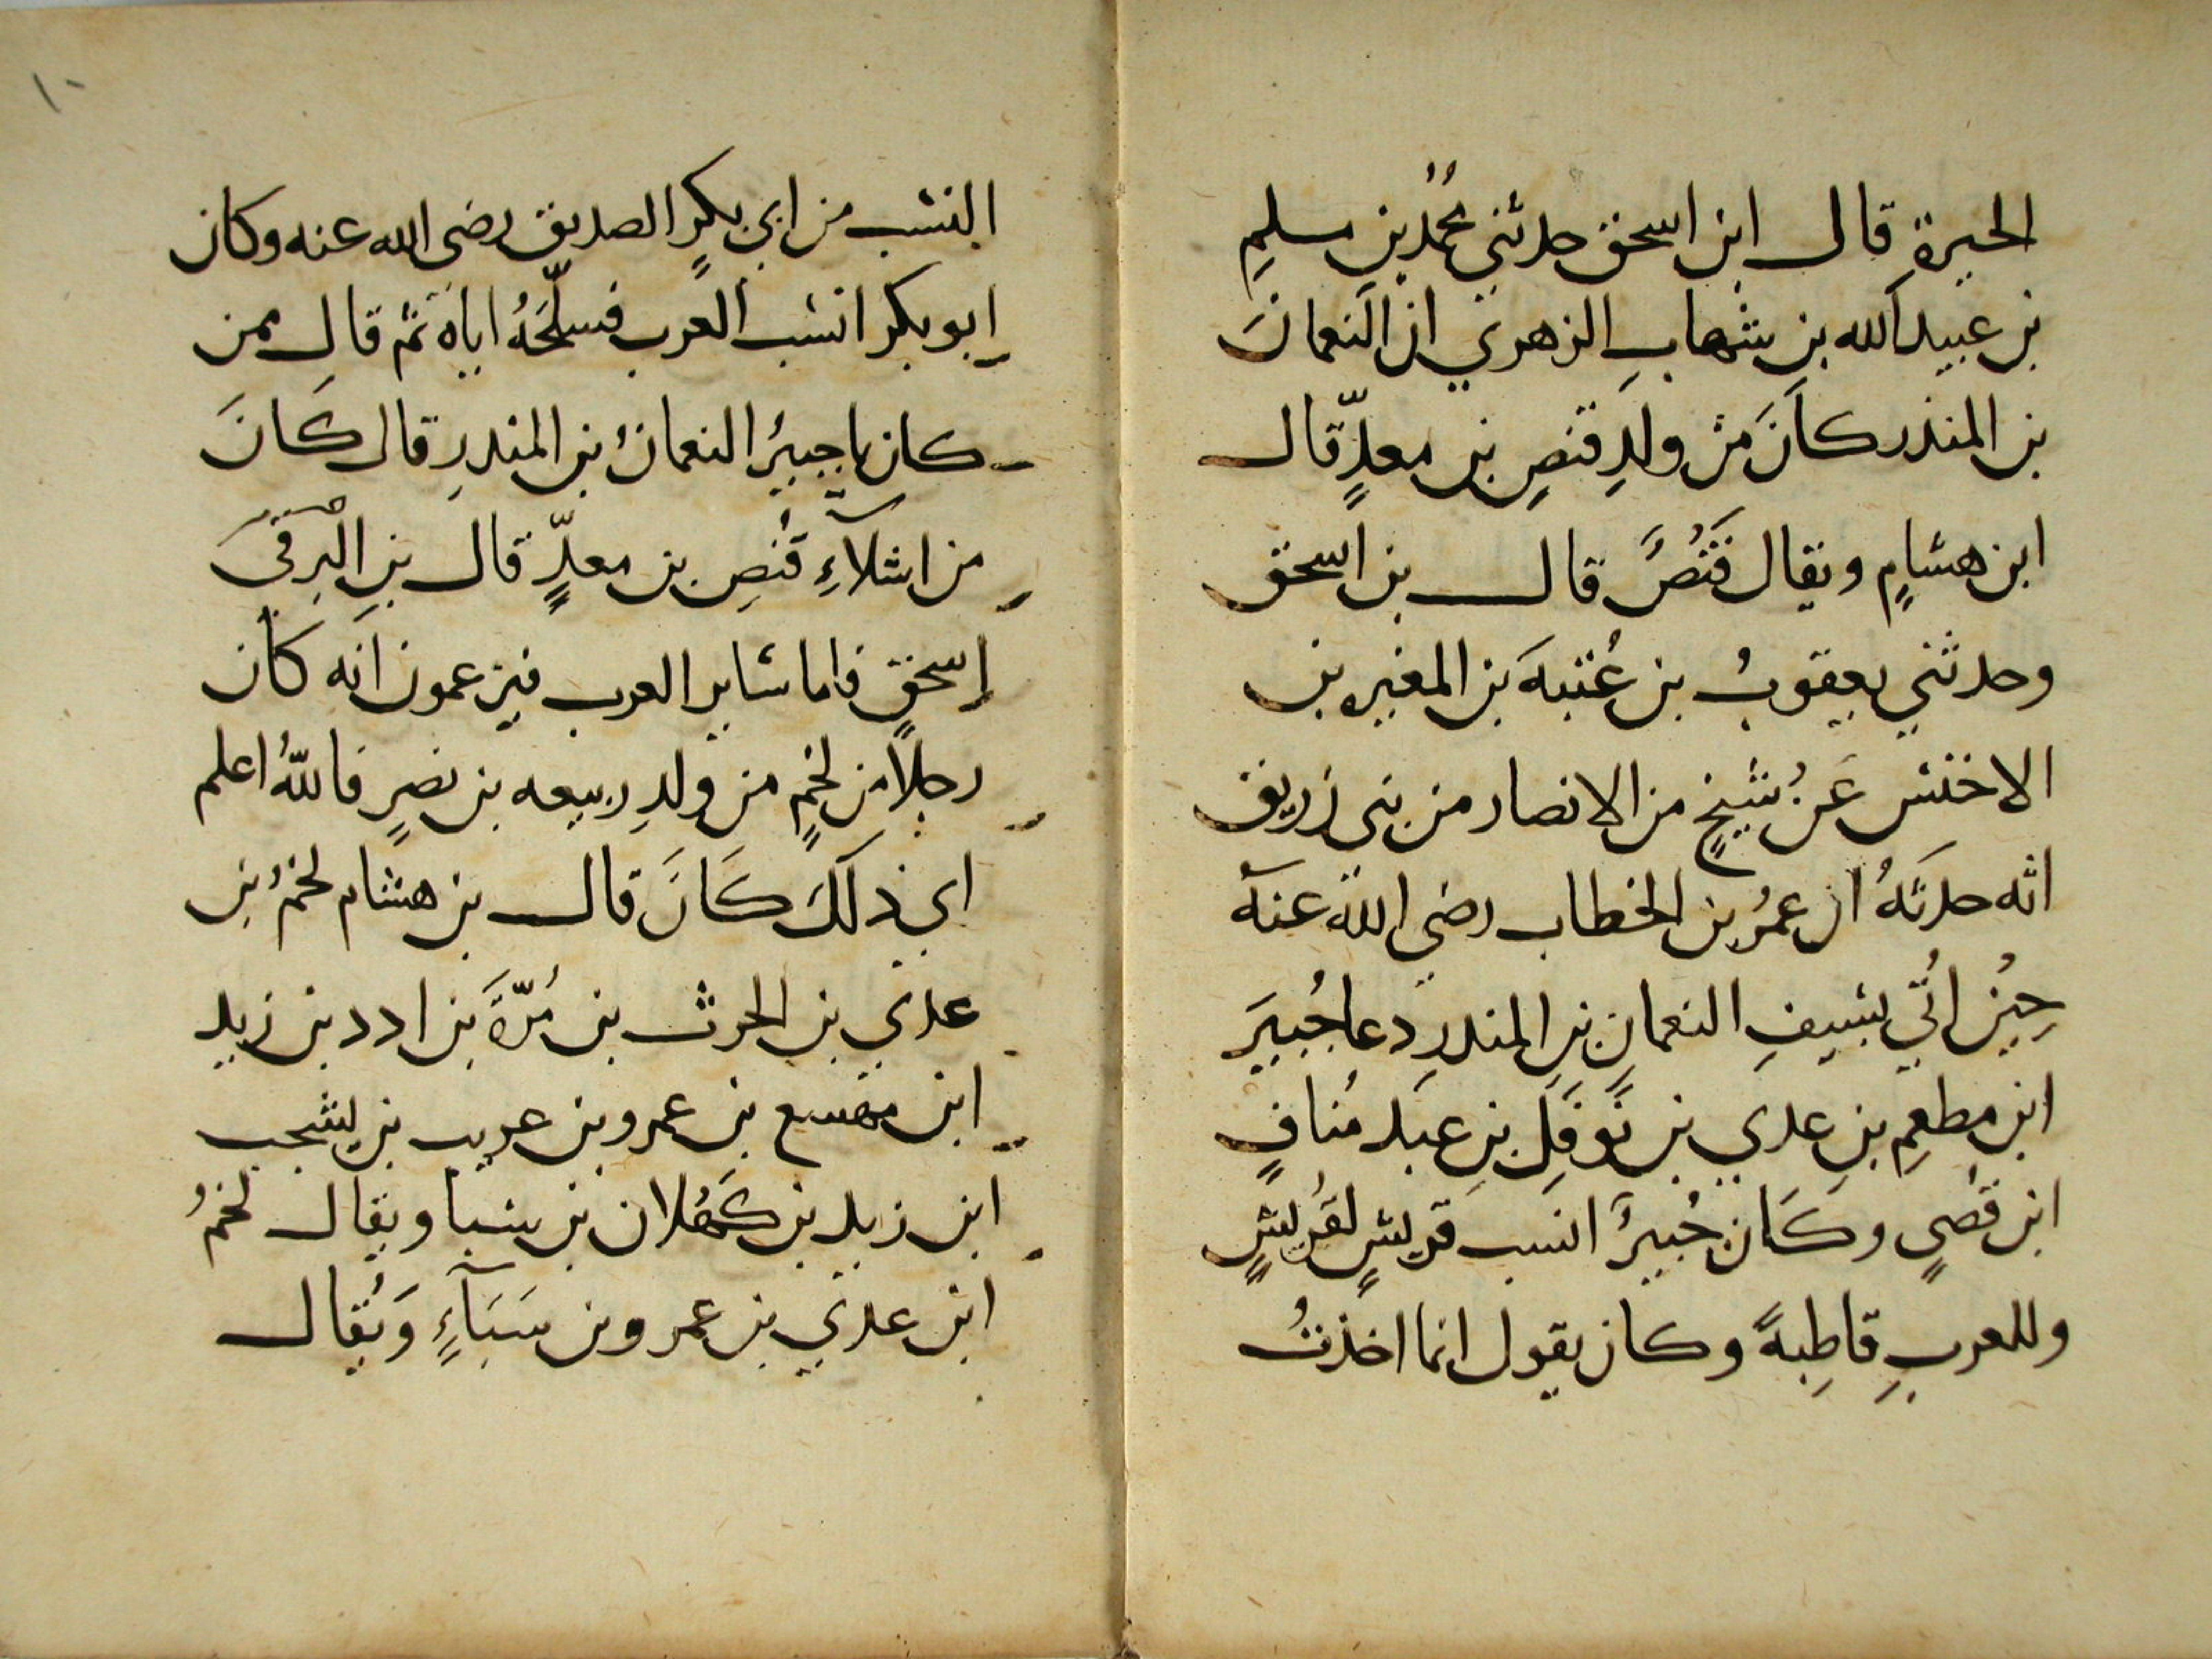 الحيرة قال ابن اسحق حدثني محمد بن مسلم
بن عبيد الله بن شهاب الزهري ان النعمان
بن المنذر كان من ولد قنص بن معد قال
ابن هشام ويقال قَنَصُ قال بن اسحق
وحدثني يعقوب بن عُتبة بن المغيره بن
الاخنس عن شيخ من الانصار من بني زريق
انه حدثه ان عمر بن الخطاب رضي الله عنه
حين اُتي بسيف النعمان بن المندر دعا جُبير
ابن مطعم بن عدي بن نَوفل بن عبد مُناف
ابن قصي وكان جُبير انسب قريش لقريش
وللعرب قاطبةً وكان يقول انما اخذتُ
١٠
النسب من ابي بكر الصديق رضى الله عنه وكان
ابو بكر انسب العرب فسلّحَهُ اياه ثم قال ممن
كان يا جبير النعمان بن المندر قال كان
من اشلآءِ قنص بن معدّ قال بن البرقي
اسحق فاما ساير العرب فيزعمون انه كان
رجلا من لخم من ولد ربيعه بن نصر فالله اعلم
اي ذلك كان قال بن هشام لخم بن
عدي بن الحرث بن مُرّة بن ادد بن زيد
ابن مهسع بن عمرو بن عريب بن يشجب
ابن زيد بن كهلان بن سبا ويقال لخم
ابن عدي بن عمرو بن سَبَآءٍ وَيُقال